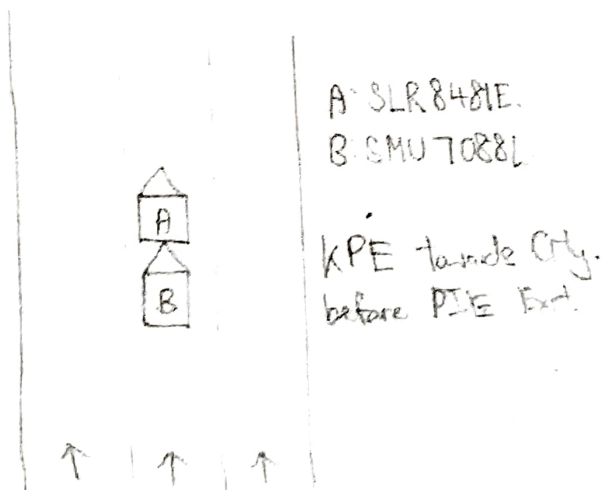 A: SLR8481E.
B: SMU7088L
A
B
KPE towards City.
before PIE Exit.